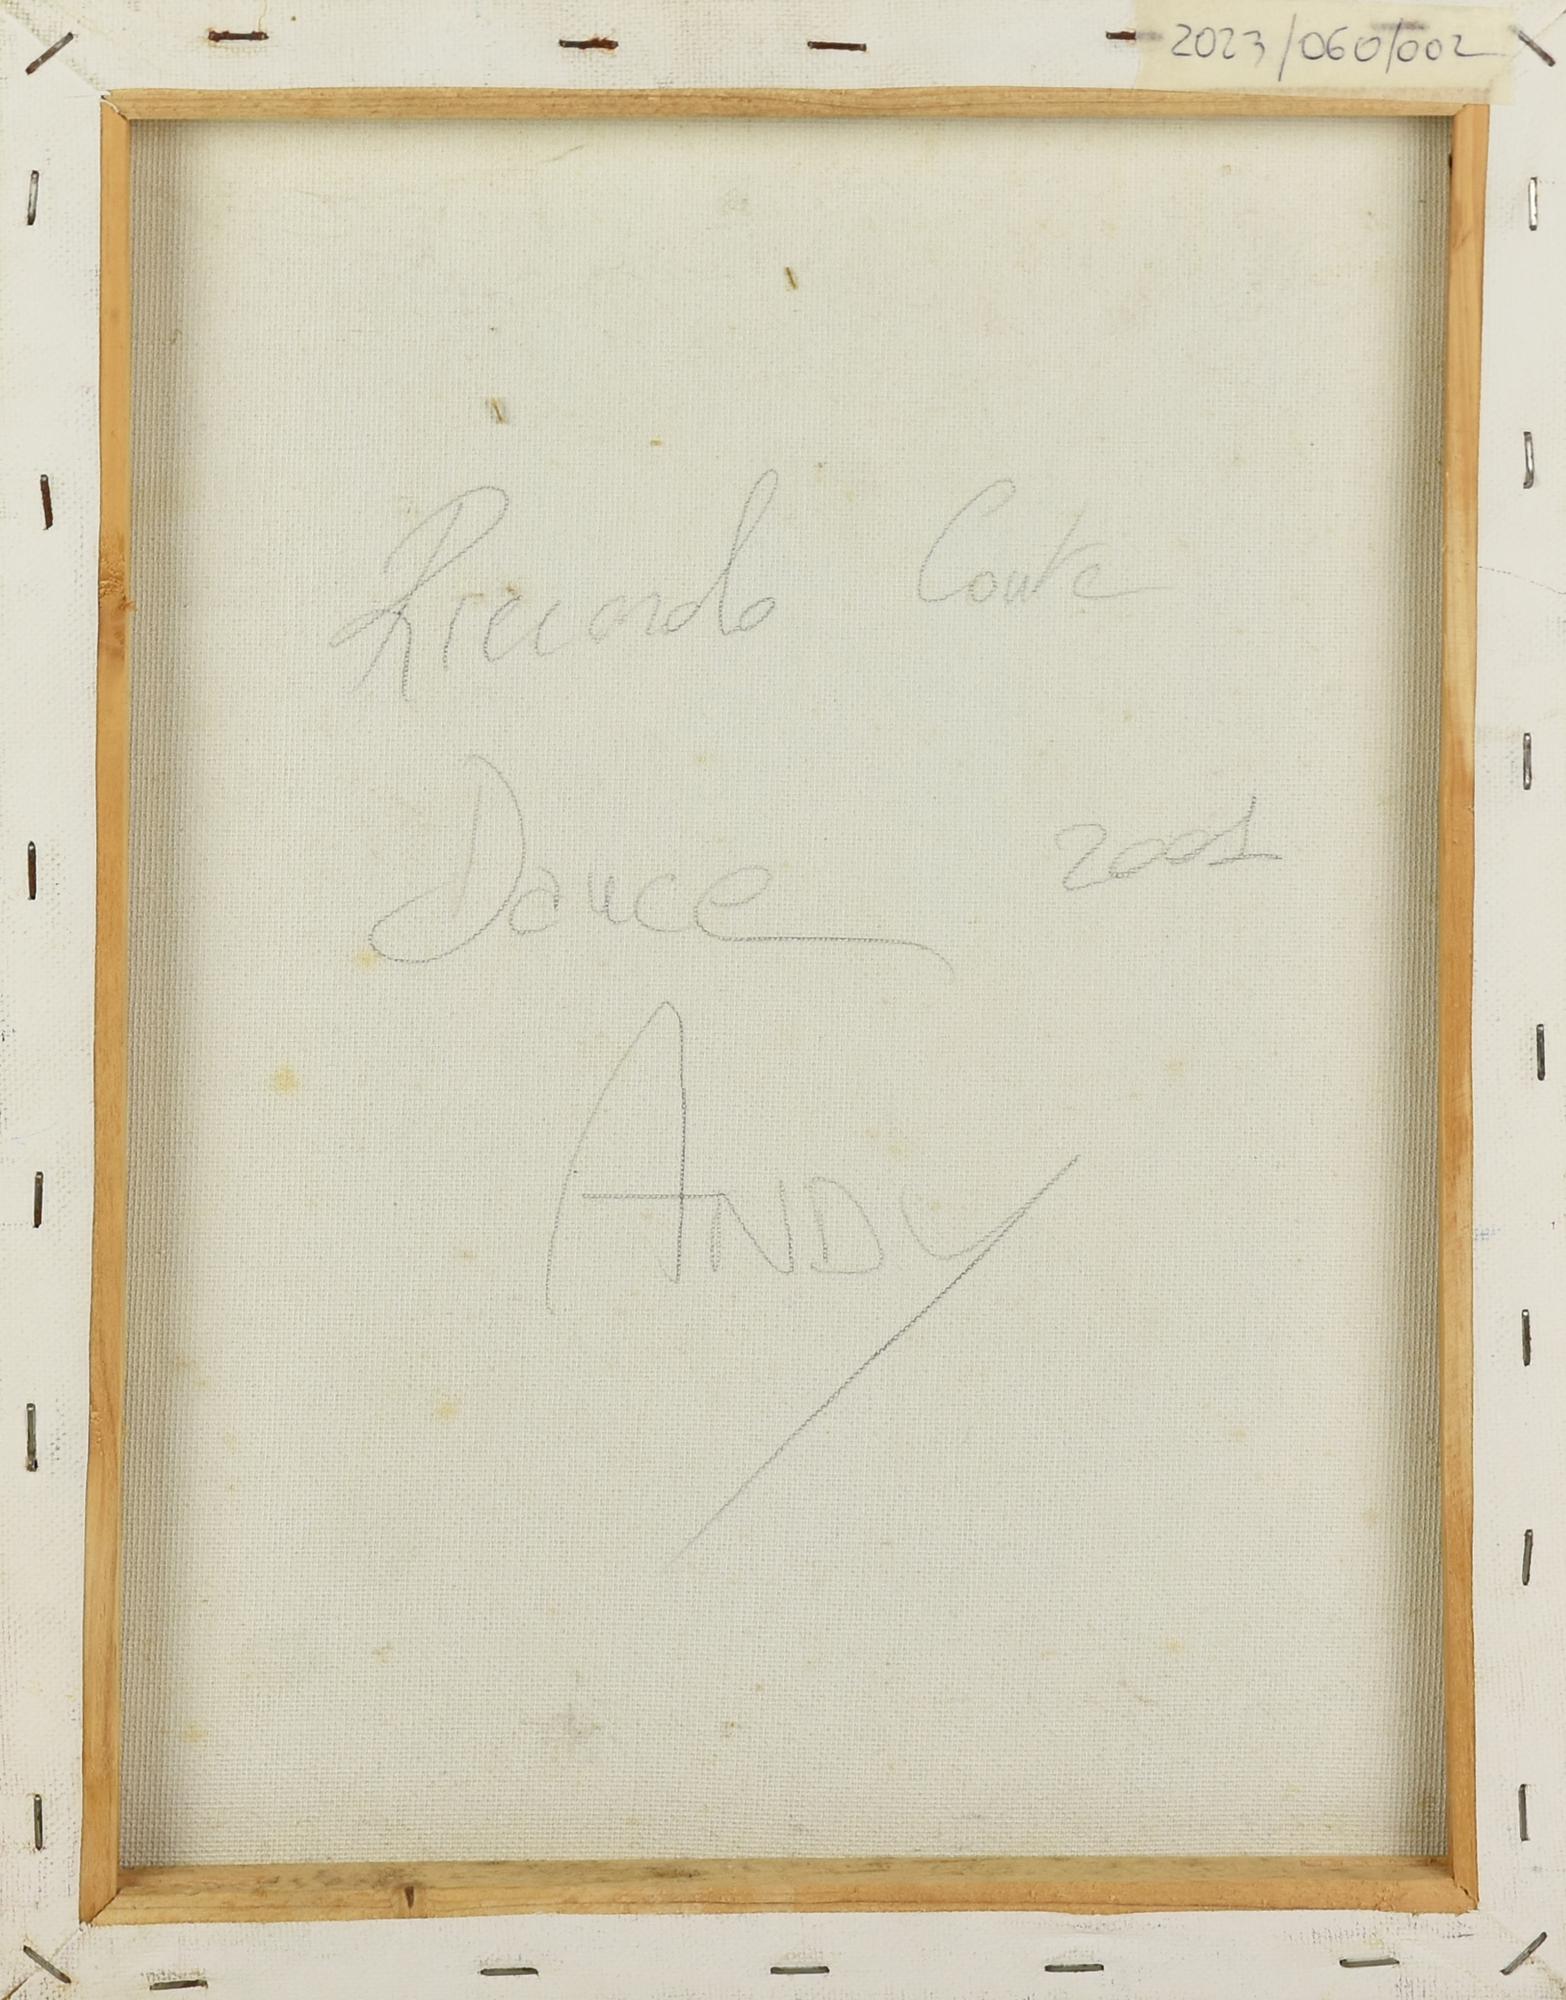 2023/060/002
Riccardo Conte
Dance 2001
ANDY